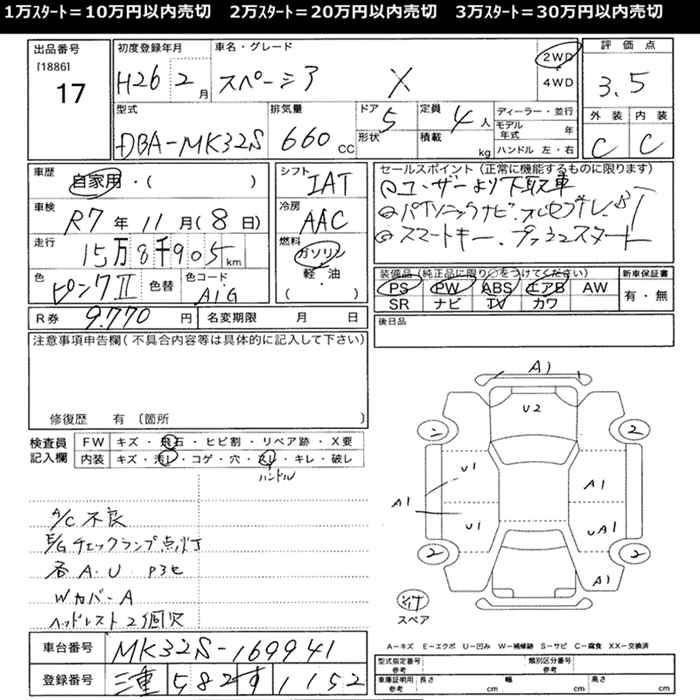 1万ｽﾀｰﾄ＝10万円以内売切　2万ｽﾀｰﾄ＝20万円以内売切　3万ｽﾀｰﾄ＝30万円以内売切
出品番号
[1886]
17
初度登録年月
H26 2月
車名・グレード
スペーシア X
2WD
4WD
評価点
3.5
外装 内装
C C
型式
DBA-MK32S
排気量
660 CC
ドア 5
形状
定員 4 人
積載 kg
ディーラー・並行
モデル年式 年
ハンドル 左・右
車歴
自家用・( )
車検
R7年 11月(8日)
走行
15万8千905km
色
ピンクII 色替
色コード
シフト
IAT
冷房
AAC
燃料
ガソリン
軽・油
( )
セールスポイント(正常に機能するものに限ります)
ユーザーより下取車
パナソニックナビ
スマートキー・プッシュスタート
装備品(純正品に限り○をつけてください)
PS PW ABS エアB AW
SR ナビ TV カワ
新車保証書
有・無
R券 9.770円
名変期限 月 日
後日品
注意事項申告欄(不具合内容等は具体的に記入して下さい)
修復歴 有(箇所 )
検査員
記入欄
FW キズ・飛石・ヒビ割・リペア跡・X要
内装 キズ・汚れ・コゲ・穴・スレ・キレ・破レ
ハンドル
A/C不良
E/Gチェックランプ点灯
各A.U
Wカバー A
ヘッドレスト2個欠
A1
U2
2 2
U1 A1
A1
U1 UA1
2 2
A1
スペア
A−キズ E−エクボ U−凹み W−補修跡 S−サビ C−腐食 XX−交換済
車台番号
MK32S-169941
登録番号
三重 582 す 1152
型式指定番号
参考
類別区分番号
参考
車庫証明用
参考
長さ cm
幅 cm
高さ cm